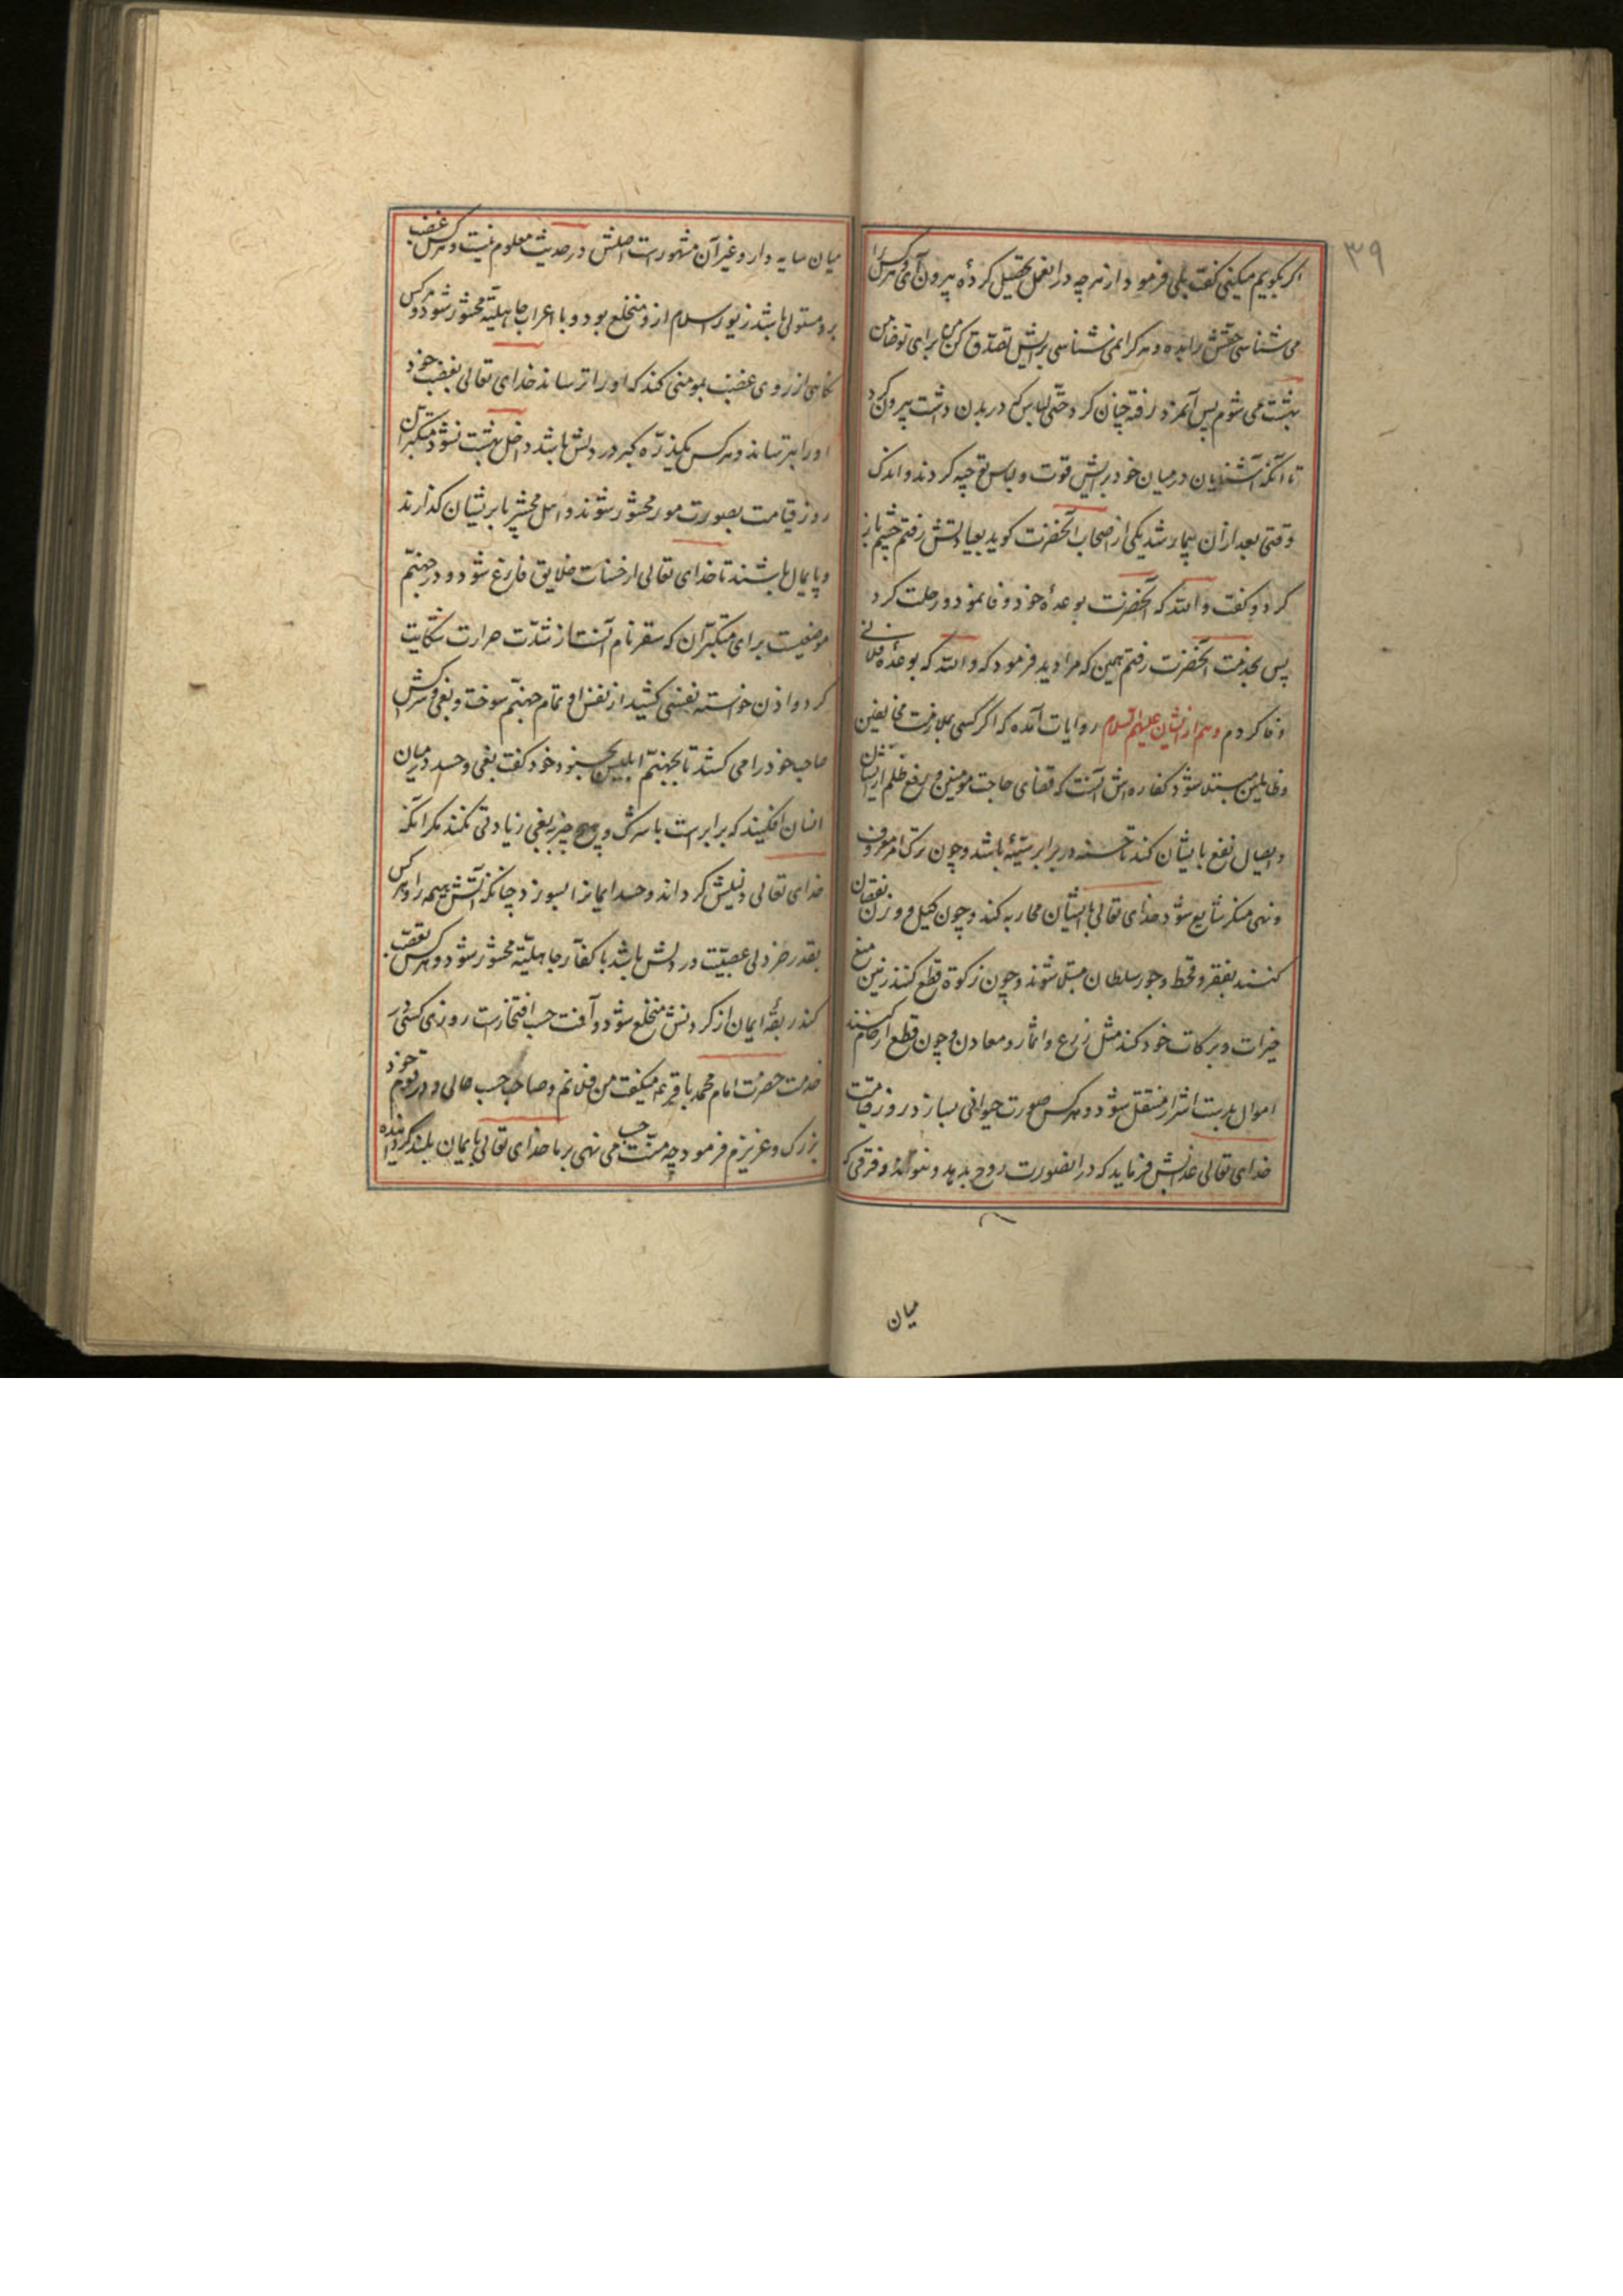 ۳۹
اکر بکویم میکنی کفت بلی فرمود از هر چه در انعمل تحصیل کردهٔ بیرون آی و هر کس را
می شناسی حقش را بده و هر کرا نمی شناسی برایش تصدق کن من برای تو ضامن
بهشت می شوم پس آنمرد رفته چنان کرد حتی لباس که در بدن داشت بیرون کرد
تا آنکه آشنایان در میان خود برایش قوت و لباس توجیه کردند و اندک
وقتی بعد از ان بیمار شد یکی از اصحاب آنحضرت کوید بعیادتش رفتم چشم باز
کرد و کفت والله که آنحضرت بوعدهٔ خود وفا نمود و رحلت کرد
پس بخدمت آنحضرت رفتم همین که مرا دید فرمود که والله که بوعدهٔ فلانی
وفا کردم و هم از ایشان علیهم السلام روایات آمده که اکر کسی بملازمت مخالفین
و ظالمین مبتلا شود کفاره اش آنست که قضای حاجت مومنین و رفع ظلم از ایشان
و ایصال نفع بایشان کند تا حسنه در برابر سیئه باشد و چون ترک امر معروف
و نهی منکر شایع شود خدای تعالی با ایشان محاربه کند و چون کیل و وزن نقصان
کنند بفقر و قحط و جور سلطان مبتلا شوند و چون زکوة قطع کنند زمین منع
خیرات و برکات خود کند مثل زرع و اثمار و معادن و چون قطع ارحام کنند
اموال بدست اشرار منتقل شود و هر کس صورت حیوانی بسازد روز قیامت
خدای تعالی عذابش فرماید که در انصورت روح بدمد و نتواند و فرقی که
میان
میان سایه دار و غیر آن مشهورست اصلش در حدیث معلوم نیست و هر کس غضب
برو مستولی باشد زیور اسلام ازو منخلع بود و با اعراب جاهلیة محشور شود و هر کس
نکاهی از روی غضب بمومنی کند که او را ترساند خدای تعالی بغضب خود
او را بترساند و هر کس یکذره کبر در دلش باشد داخل بهشت نشود متکبران
روز قیامت بصورت مور محشور شوند و اهل محشر پا بر ایشان کذارند
و پایمال باشند تا خدای تعالی از حسنات خلایق فارغ شود و در جهنم
موضعیست برای متکبران که سقر نام آنست از شدت حرارت شکایت
کرد و اذن خواسته نفسی کشید از نفس او تمام جهنم سوخت و بغی و سرکشی
صاحب خود را می کشد تا بجهنم ابلیس بجنود خود کفت بغی و حسد در میان
انسان افکنید که برابرست با شرک و هیچ چیز بغی زیادتی نکند مکر آنکه
خدای تعالی ذلیلش کرداند و حسد ایمانرا بسوزد چنانکه آتش هیمه را و هر کس
بقدر خردلی عصبیت در دلش باشد با کفار جاهلیة محشور شود و هر کس تعصب
کند ربقهٔ ایمان از کردنش منخلع شود و آفت حسب افتخارست روزی کسی
خدمت حضرت امام محمد باقر ع میکفت من فلانم و صاحب حسب عالی و در قوم خود
بزرک و عزیزم فرمود چه منت حسب می نهی بر ما خدای تعالی بایمان بلند کردانیده